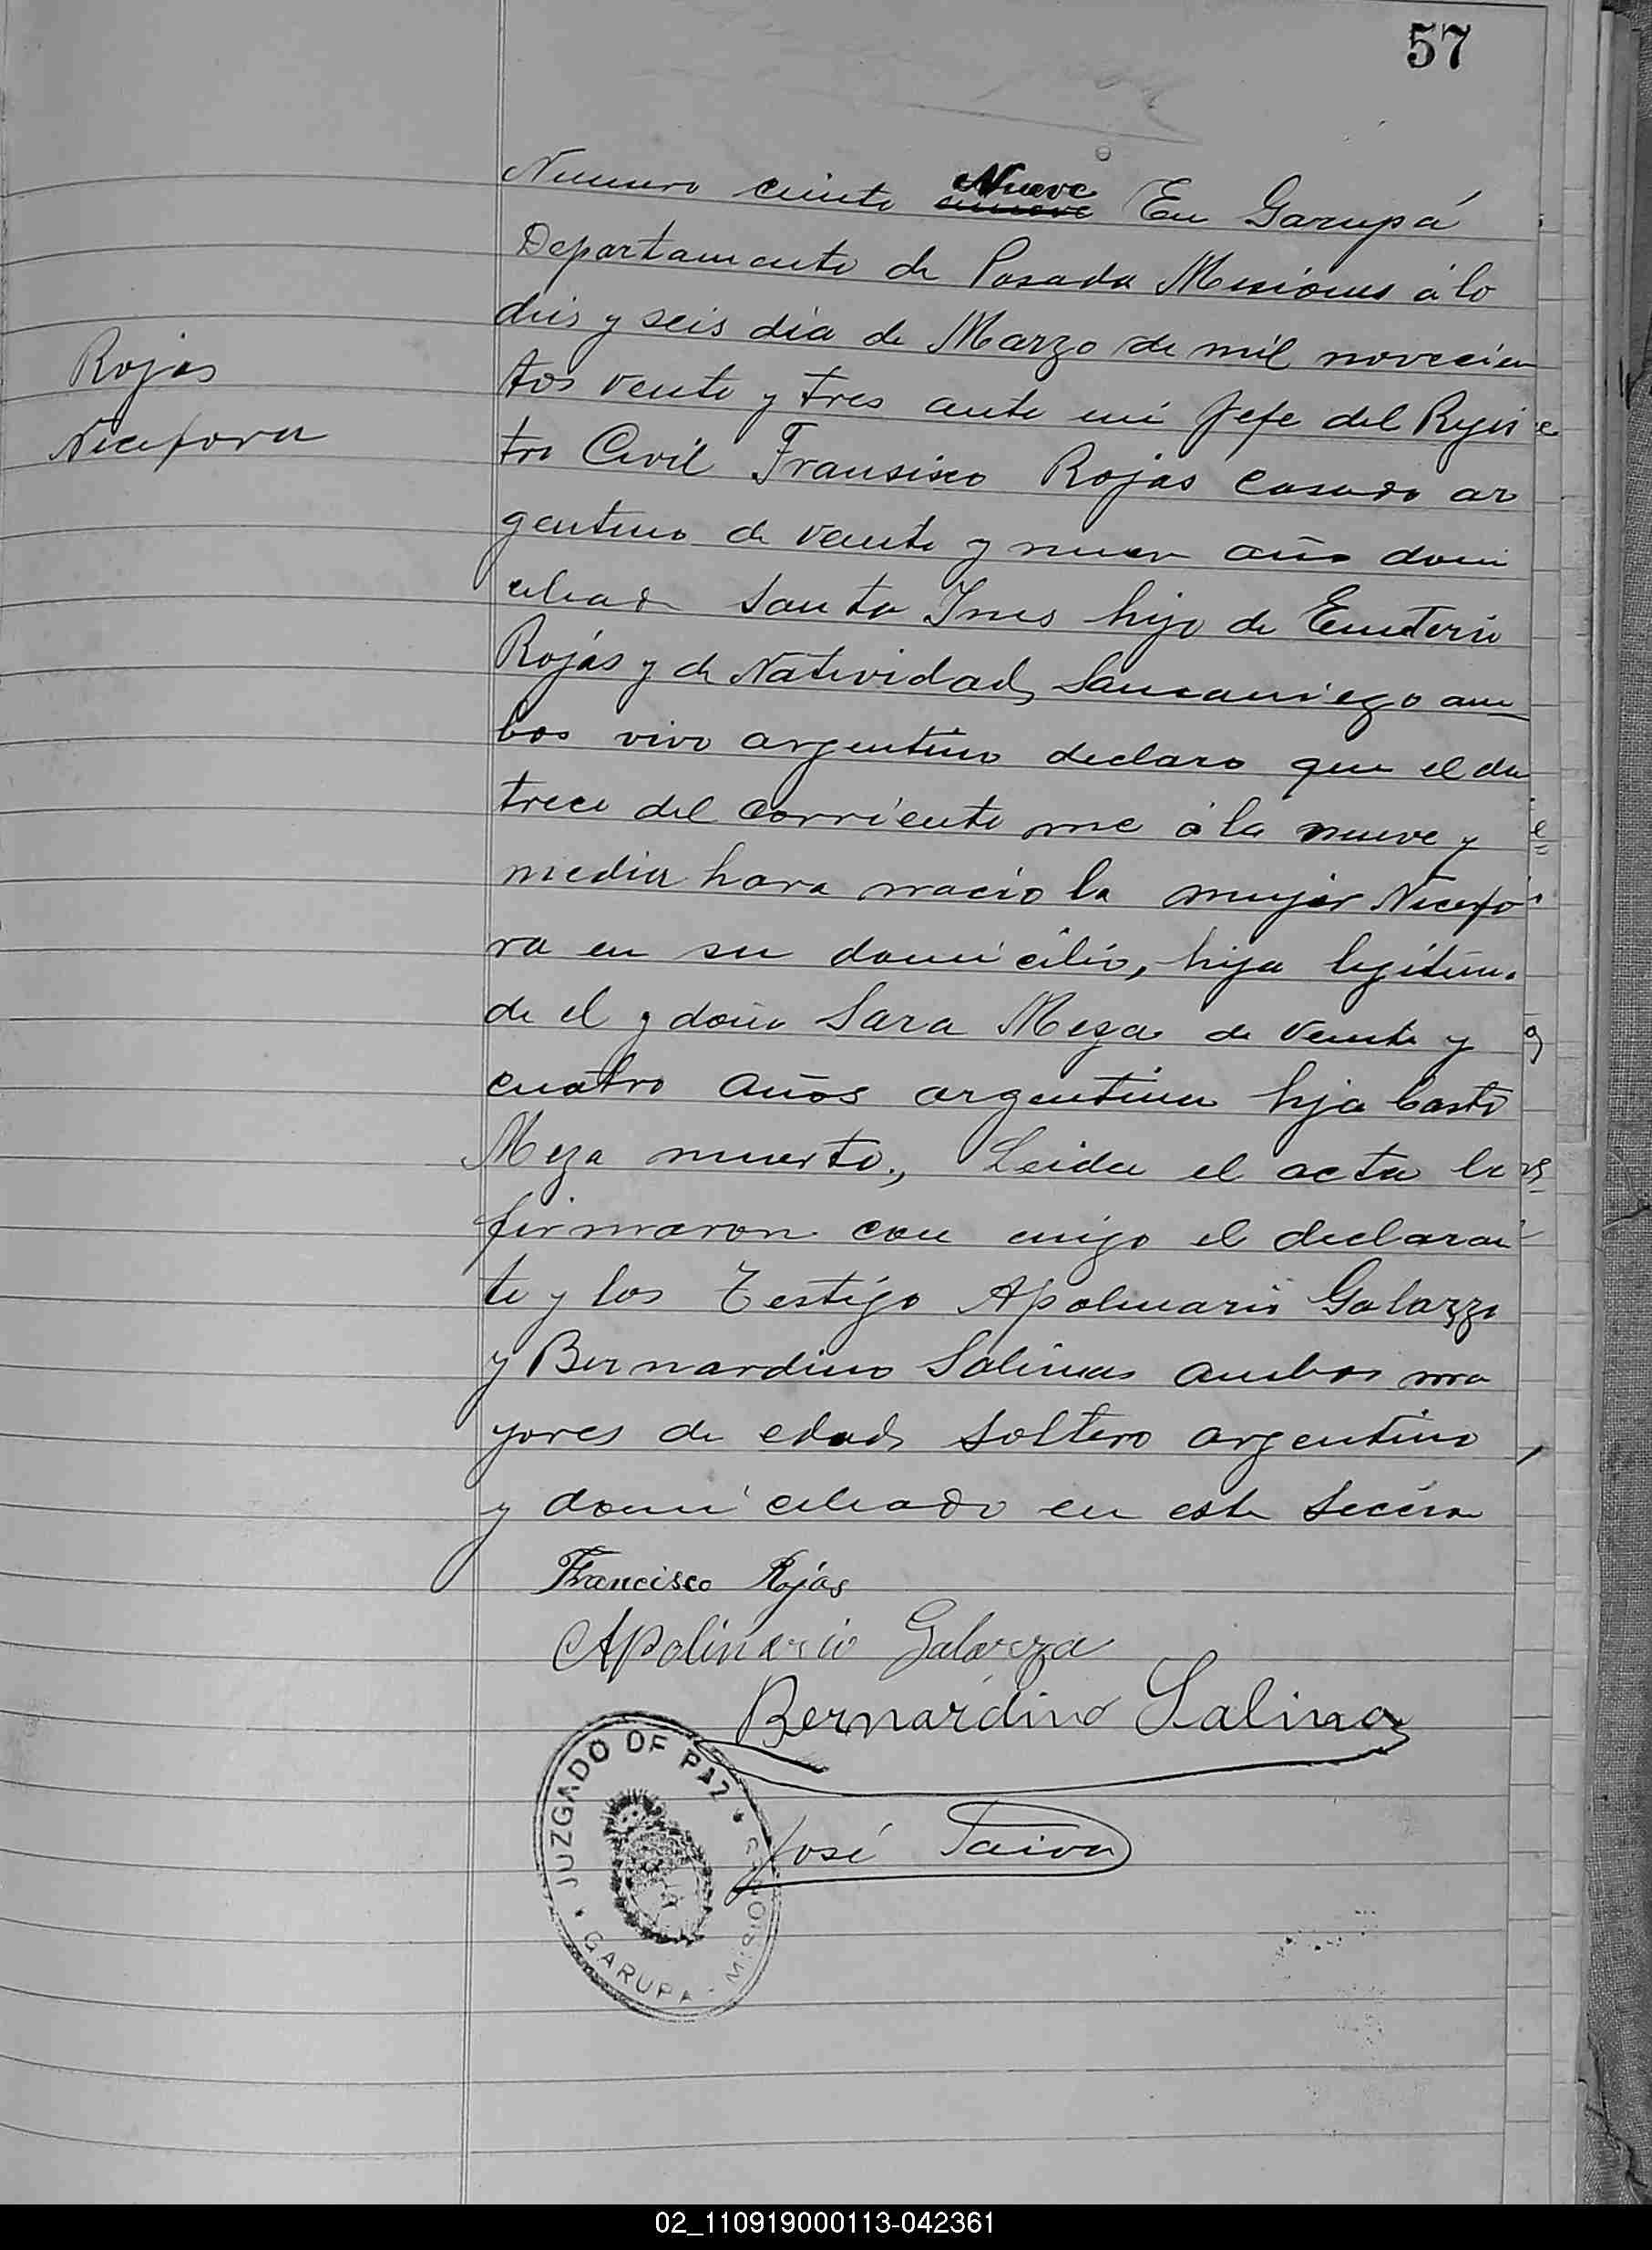 57
Numero ciento Nueve En Garupá
Departamento de Posada Misiones á lo
dies y seis dia de Marzo de mil novecien
tos vente y tres ante mi Jefe del Regis
tro Civil Fransisco Rojas casado ar
gentino de vente y nueve año domi
ciliado Santa Ines hijo de Emeterio
Rojas y de Natividad Samaniego am
bos vivo argentino declaro que el dia
trece del corriente me á la nueve y
media hora nacio la mujer Nicefo
ra en su domicilio, hija legitima
de el y doña Sara Meza de vente y
cuatro años argentina hija Casto
Meza muerto., Leida el acta la
firmaron con migo el declaran
te y los Testigo Apolinario Galarza
y Bernardino Salinas ambos ma
yores de edad soltero argentino
y domiciliado en esta seccion
Rojas
Nicefora
Francisco Rojas
Apolinario Galarza
Bernardino Salina
José Paiva
JUZGADO DE PAZ
GARUPA - MISIONES
02_110919000113-042361